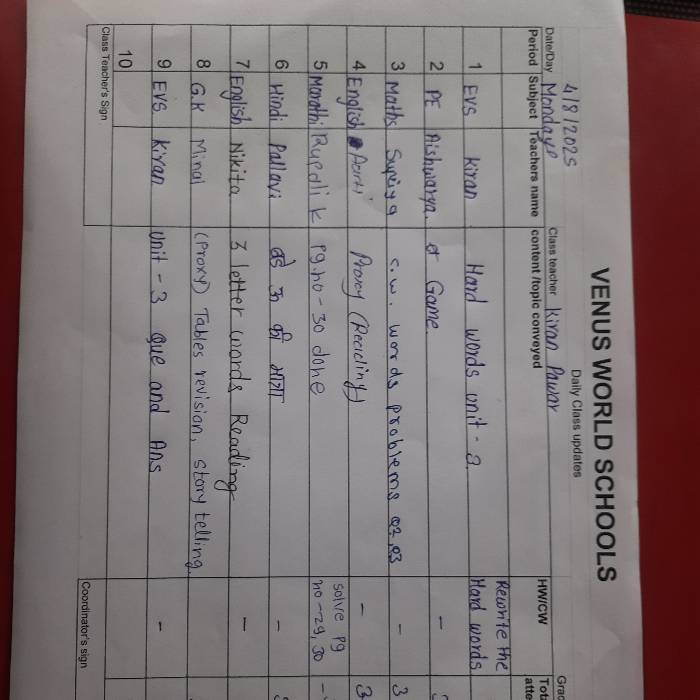 VENUS WORLD SCHOOLS
Daily Class updates
Date/Day 4/8/2025 Monday Class teacher Kiran Pawar
Period Subject Teachers name content /topic conveyed HW/CW
1 EVS Kiran Hard words unit - 2. Rewrite the Hard words
2 PE Aishwarya. Game. -
3 Maths Supriya c.w. words problems Q2, Q3 - 3
4 English Aarti Proxy (Reciding) - 3
5 Marathi Rupali K pg.no - 30 done solve pg no - 29, 30
6 Hindi Pallavi बड़े ऊ की मात्रा -
7 English Nikita 3 letter words Reading -
8 G.K Minal (Proxy) Tables revision, story telling.
9 EVS Kiran unit - 3 Que and Ans -
10
Class Teacher's Sign Coordinator's sign